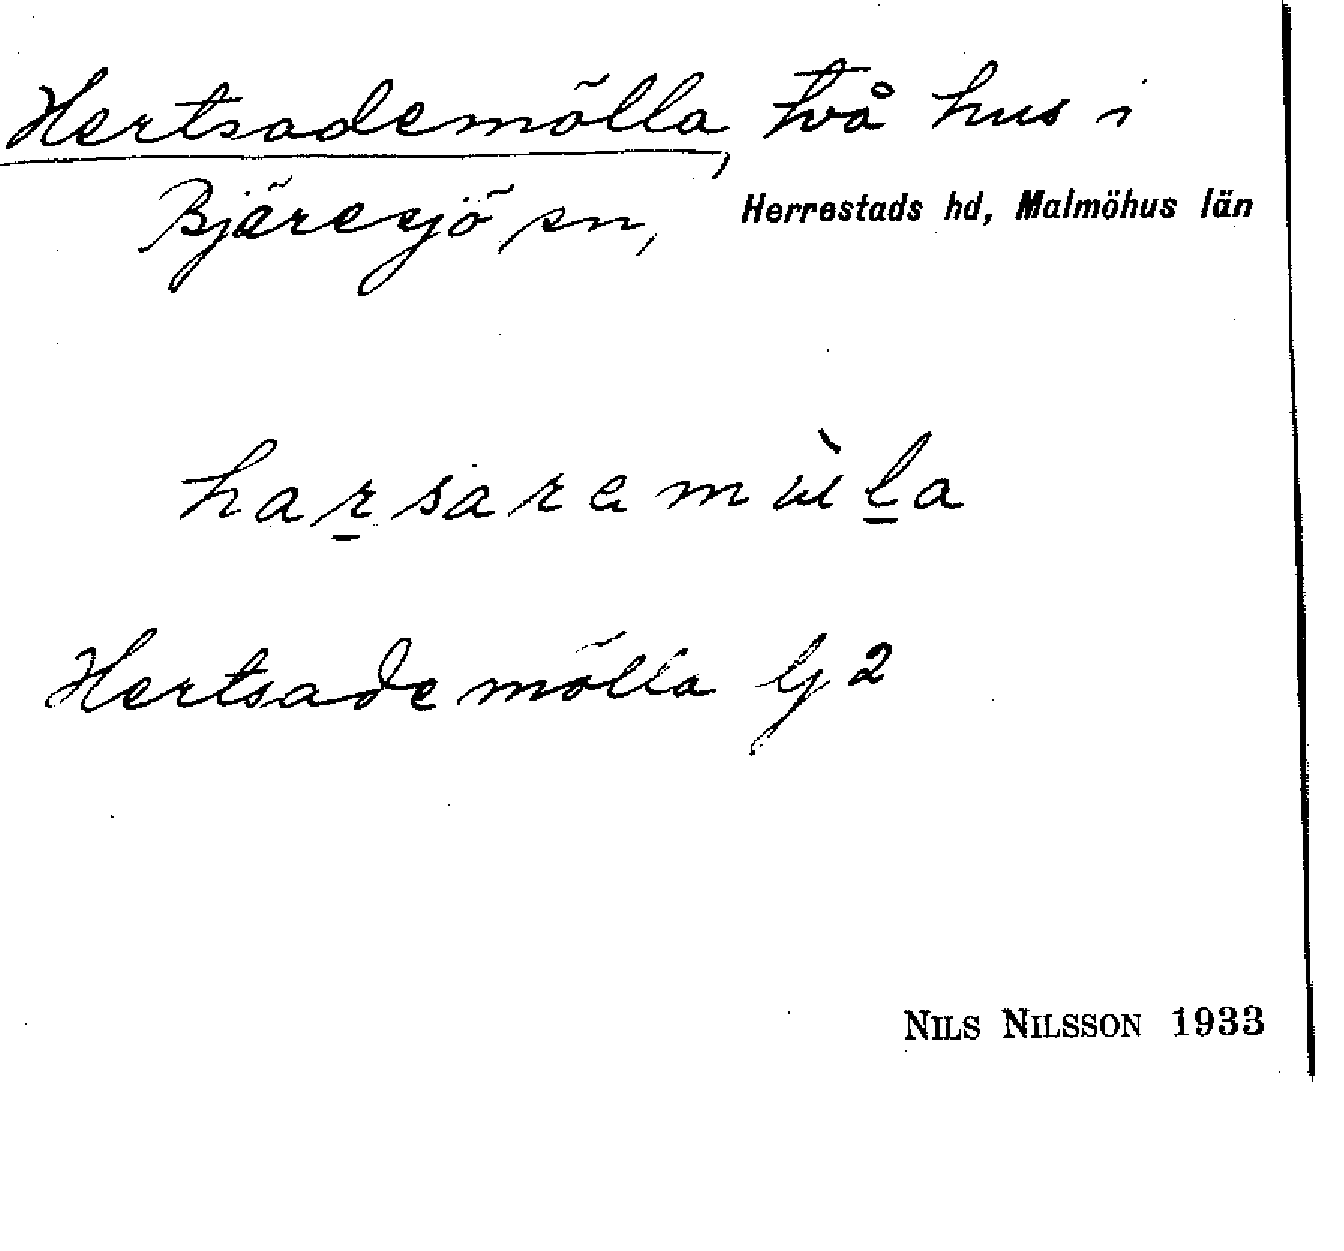 Hertsademölla, två hus i
Bjäresjö sn, Herrestads hd, Malmöhus län
Hertsademölla lj 2
NILS NILSSON 1933